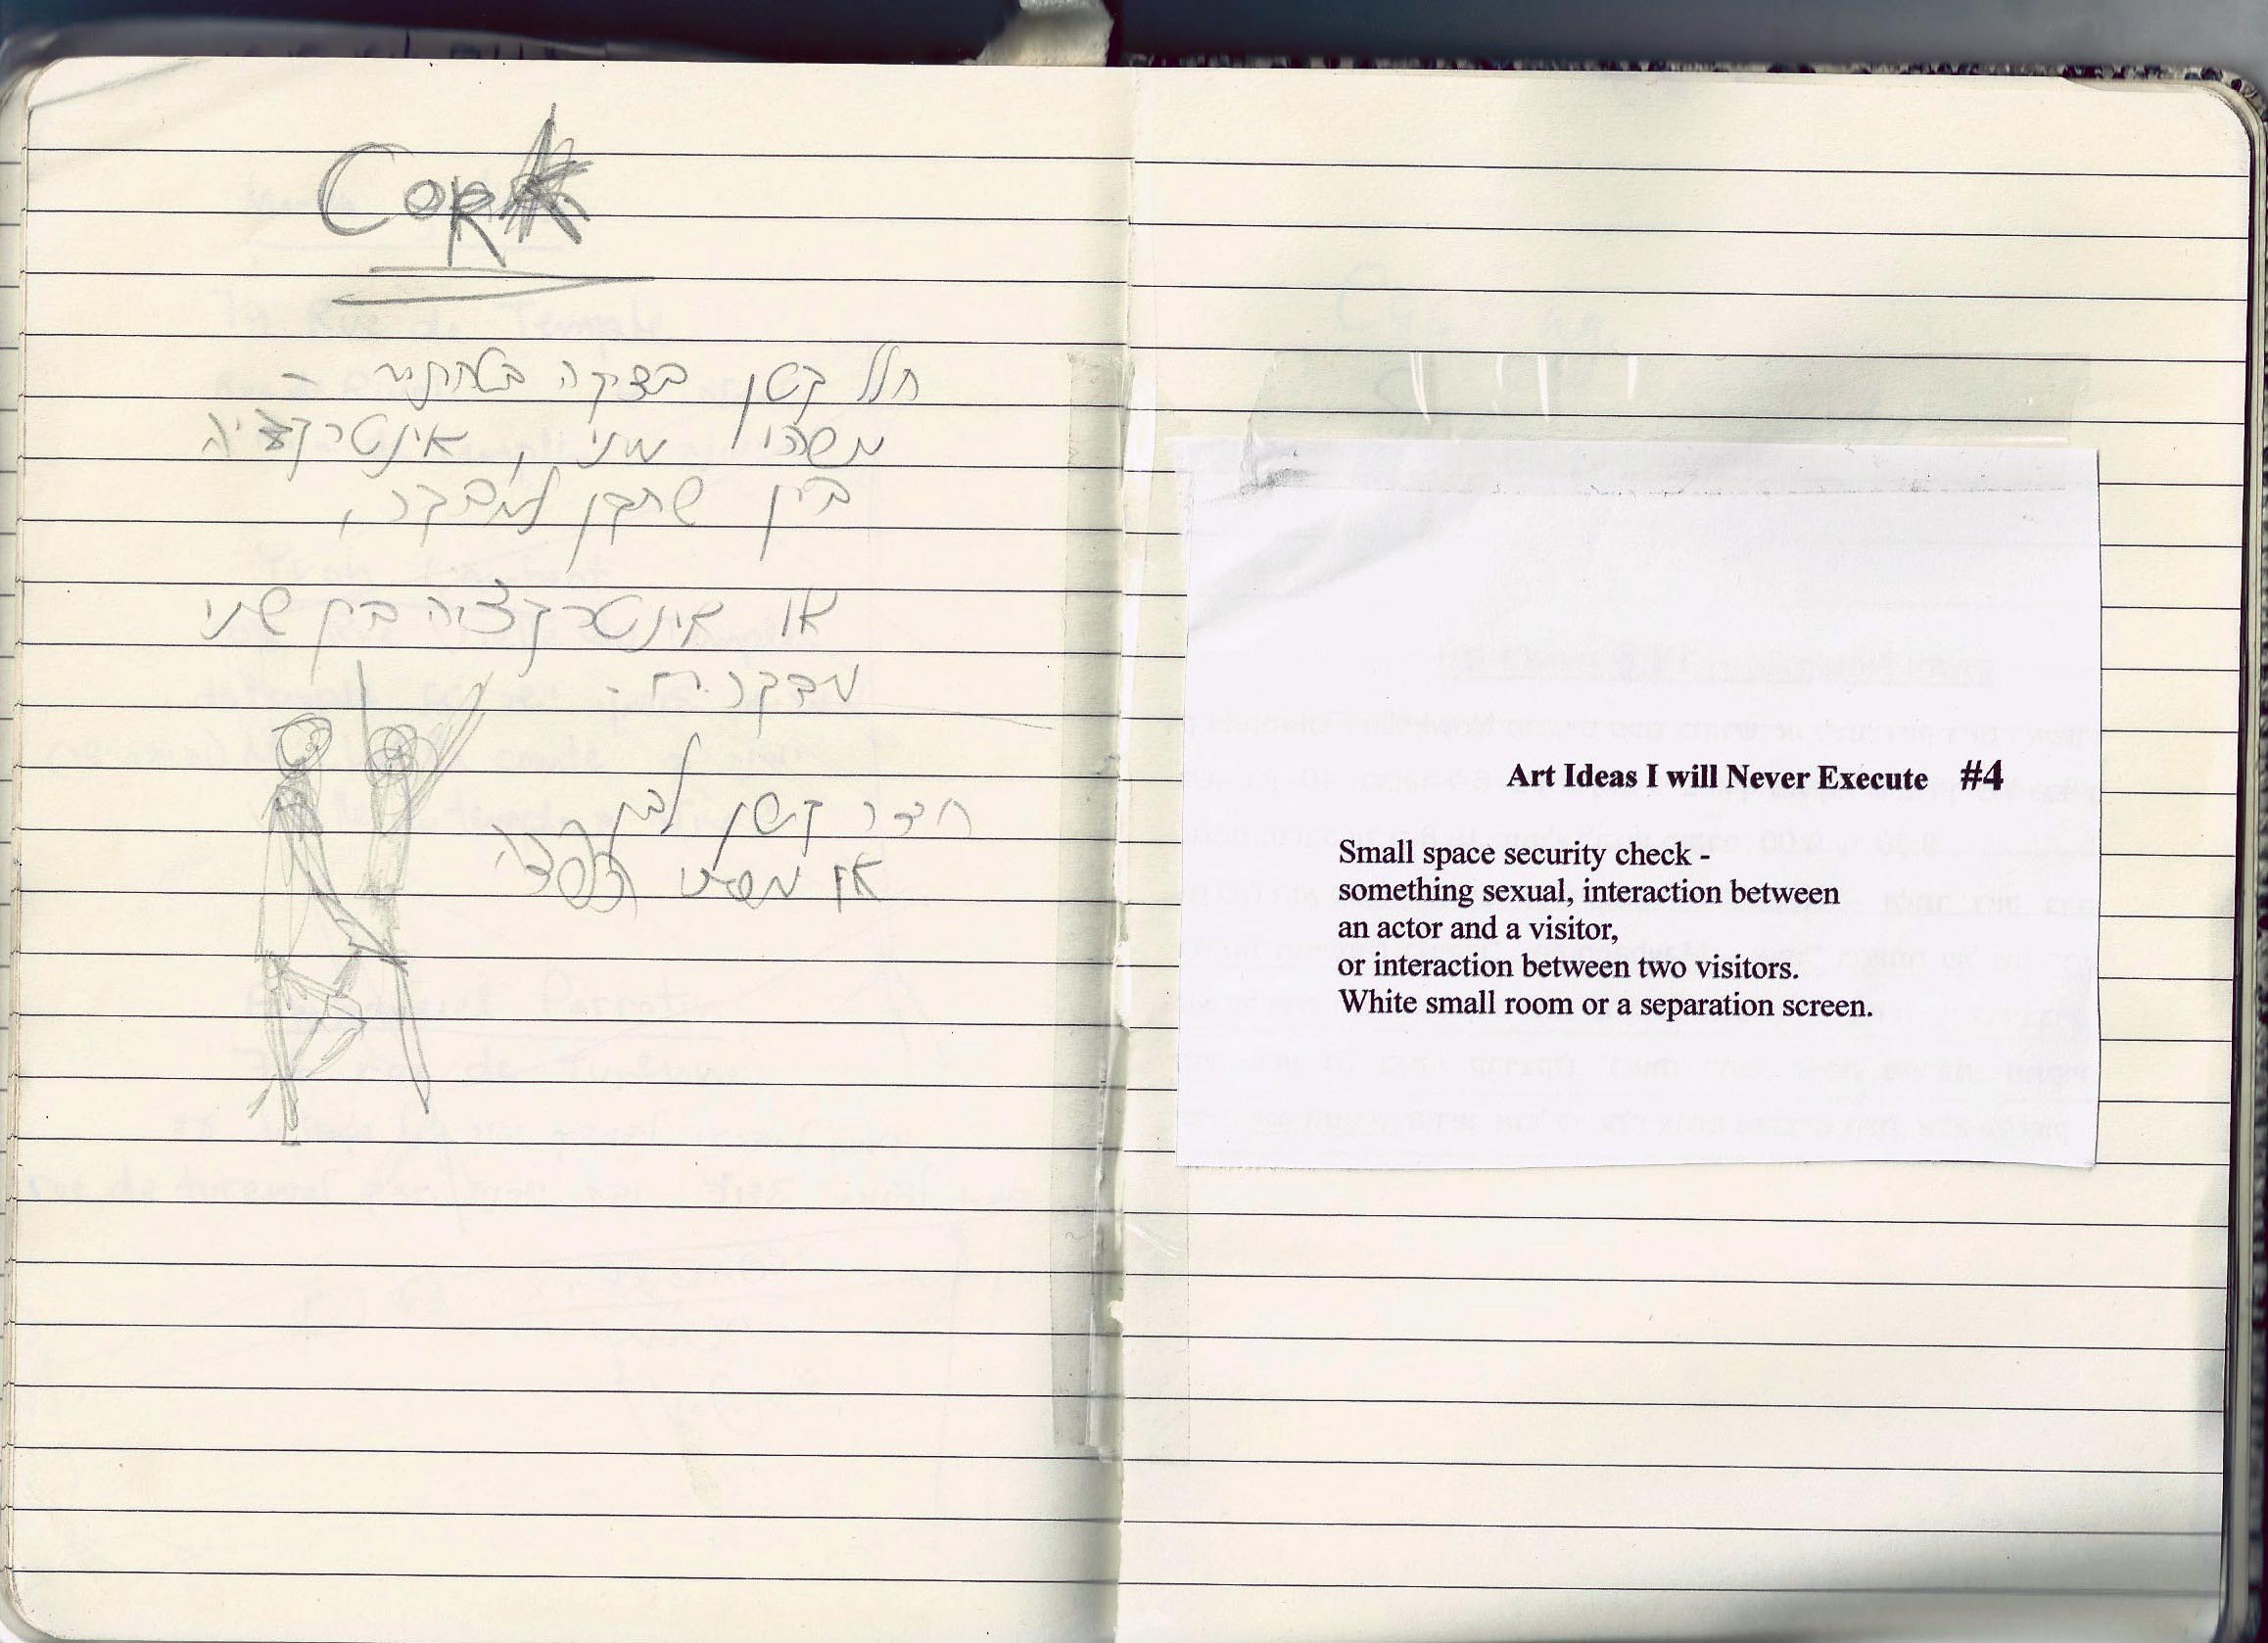 Cork
חלל קטן בדיקה בטחונית -
משהו מיני, אינטרקציה
בין שחקן למבקר,
או אינטרקציה בין שני
מבקרים -
חדר קטן לבן
או מסך הפרדה
Art Ideas I will Never Execute #4
Small space security check -
something sexual, interaction between
an actor and a visitor,
or interaction between two visitors.
White small room or a separation screen.